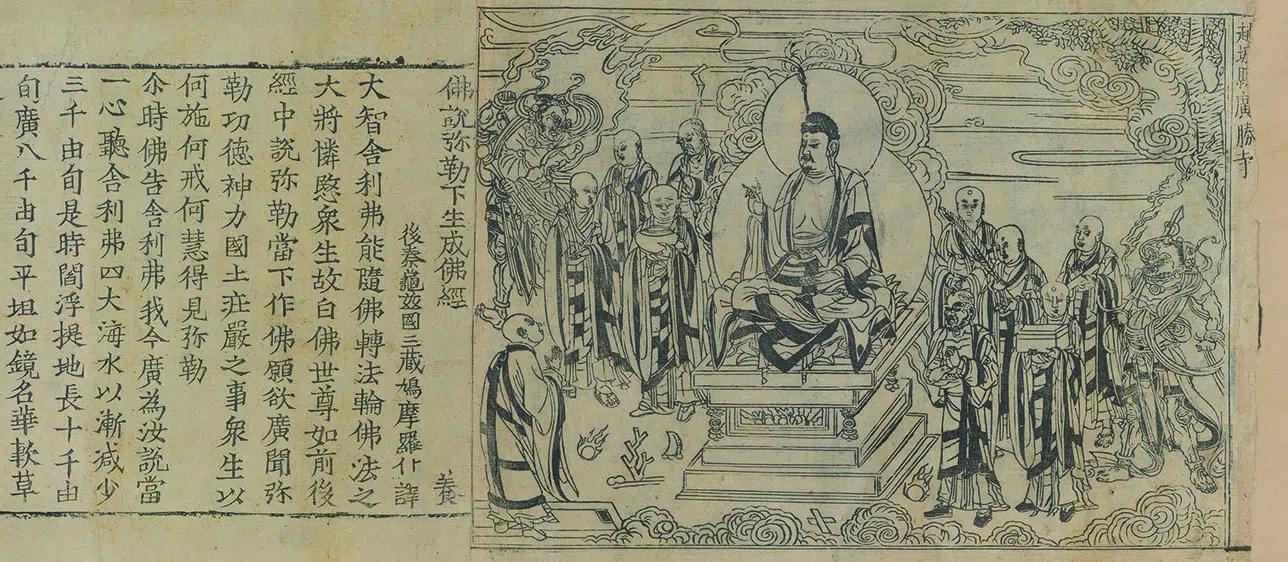 趙城縣廣勝寺
佛說弥勒下生成佛經
後秦龜兹國三藏鳩摩羅什譯 養
大智舍利弗能隨佛轉法輪佛法之
大將憐愍衆生故白佛世尊如前後
經中說弥勒當下作佛願欲廣聞弥
勒功德神力國土莊嚴之事衆生以
何施何戒何慧得見弥勒
尒時佛告舍利弗我今廣為汝說當
一心聽舍利弗四大海水以漸减少
三千由旬是時閻浮提地長十千由
旬廣八千由旬平坦如鏡名華軟草